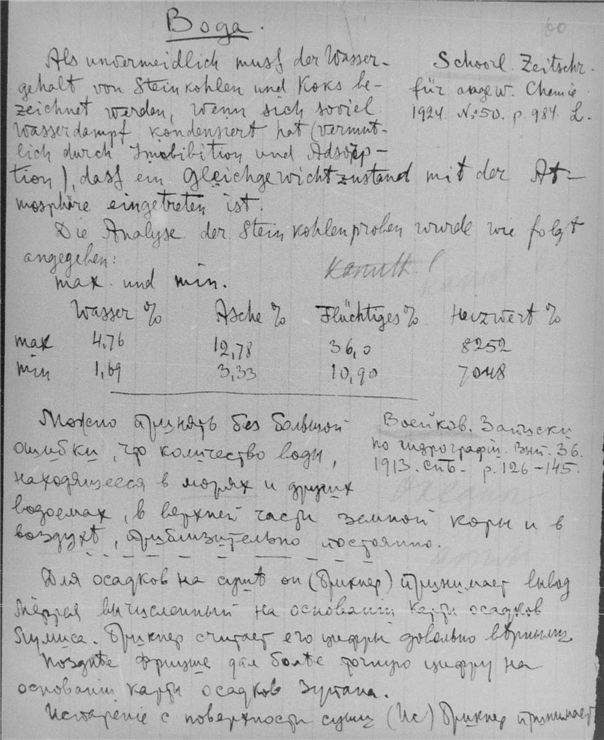 Вода.
60
Als unvermeidlich muss der Wasser-
gehalt von Steinkohlen und Koks be-
zeichnet werden, wenn sich soviel
Wasserdampf kondensiert hat (vermut-
lich durch Imbibition und Adsorp-
tion), dass ein Gleichgewichtzustand mit der At-
mosphäre eingetreten ist.
Schoorl. Zeitschr.
für angew. Chemie
1924. №50. p. 984.
Die Analyse der Steinkohlenproben wurde wie folgt
angegeben:
max. und min.
Wasser % Asche % Flüchtiges % Heizwert %
max 4,76 12,78 36,0 8252
min 1,69 3,33 10,90 7048
Можно принять без большой
ошибки, что количество воды,
находящееся в морях и других
водоемах, в верхней части земной коры и в
воздухѣ, приблизительно постоянно.
Воейков. Записки
по гидрографіи. Вып. 36.
1913. спб. p. 126-145.
Океаны
Для осадков на сушѣ он (Брикнер) принимает вывод
Мёррея вычисленный на основаніи карты осадков
Лумиса. Брикнер считает его цифры довольно вѣрными.
Позднѣе Фрицше дал болѣе точную цифру на
основаніи карты осадков Зупана.
Испареніе с поверхности суши (Ис) Брикнер принимает